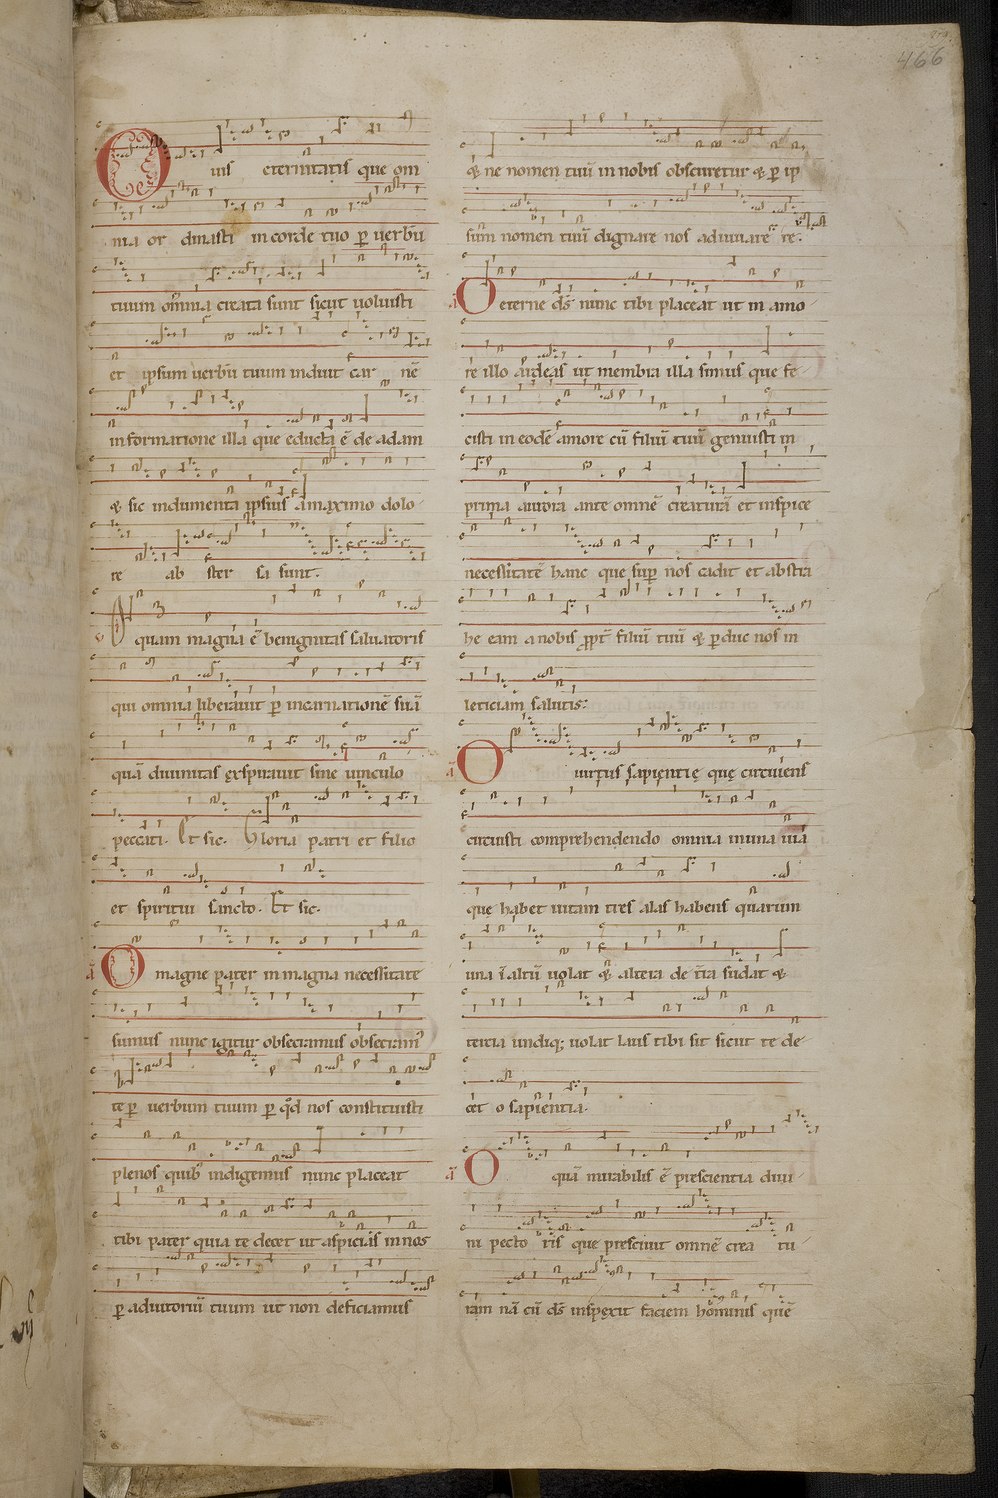 466
O uis eternitatis que om
nia or dinasti in corde tuo p̲ uerbū
tuum om̄ia creata sunt sicut uoluisti
et ipsum uerbū tuum induit car nē
in formatione illa que educta ē de adam
⁊ sic indumenta ipsius a maximo dolo
re ab ster sa sunt.
O quam magna ē benignitas saluatoris
qui omnia liberauit p̲ incarnationē suā
quā diuinitas exspirauit sine uinculo
peccati. Et sic. Gloria patri et filio
et spiritui sancto. Et sic.
O magne pater in magna necessitate
sumus nunc igitur obsecramus obsecram᷒
te p̲ uerbum tuum p̲ qd̄ nos constituisti
plenos quib᷒ indigemus nunc placeat
tibi pater quia te decet ut aspicias in nos
p̲ adiutoriū tuum ut non deficiamus
⁊ ne nomen tuū in nobis obscuretur ⁊ p̲ ip
sum nomen tuū dignare nos adiuuare re.
O eterne ds̄ nunc tibi placeat ut in amo
re illo ardeas ut membra illa simus que fe
cisti in eodē amore cū filiū tuū genuisti in
prima aurora ante omnē creaturā et inspice
necessitatē hanc que sup̲ nos cadit et abstra
he eam a nobis pp̄t filiū tuū ⁊ p̲duc nos in
leticiam salutis.
O uirtus sapientię quę circuiens
circuisti comprehendendo omnia in una uia
que habet uitam tres alas habens quarum
una ī altū uolat ⁊ altera de t̄ra sudat ⁊
tercia undiq; uolat Laus tibi sit sicut te de
cet o sapientia.
O quā mirabilis ē prescientia diui
ni pecto ris que presciuit omnē crea tu
ram nā cū ds̄ inspexit faciem hominis quē